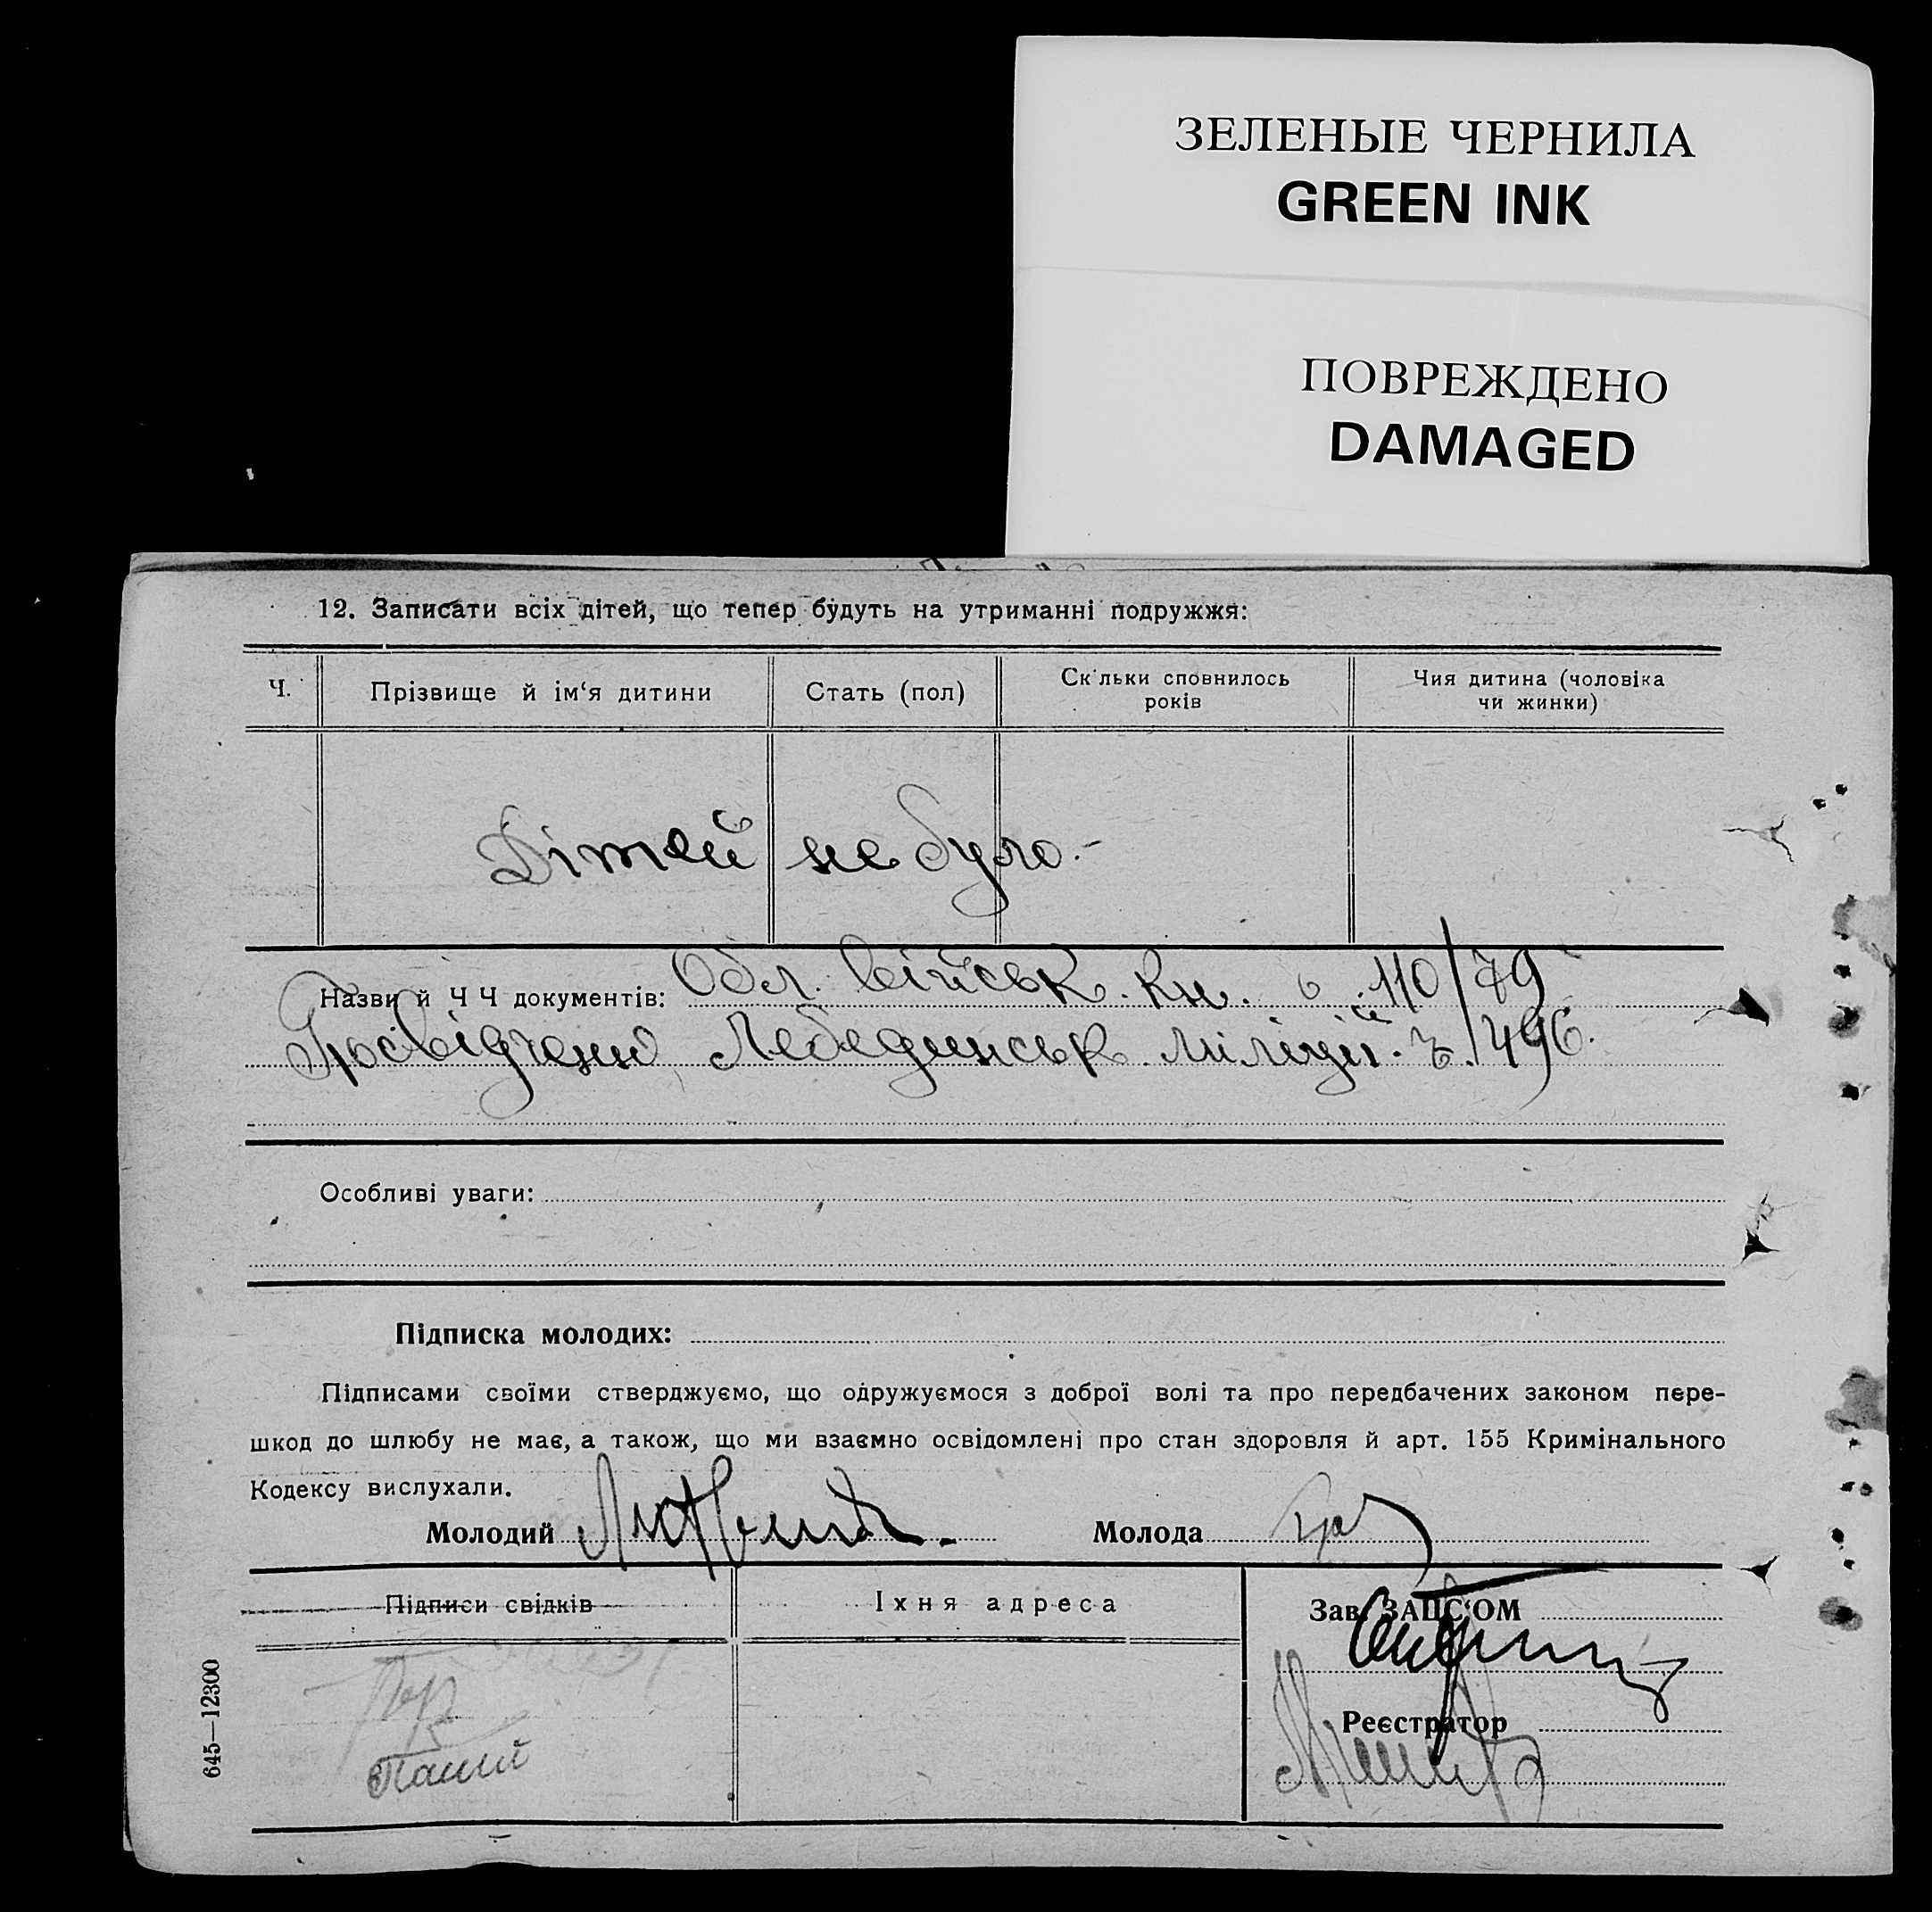 ЗЕЛЕНЫЕ ЧЕРНИЛА
GREEN INK
ПОВРЕЖДЕНО
DAMAGED
12. Записати всіх дітей, що тепер будуть на утриманні подружжя:
Ч. Прізвище й ім‘я дитини Стать (пол) Скільки сповнилось років Чия дитина (чоловіка чи жинки)
Дітей не було.-
Назви й Ч Ч документів: Обл. військ. кн. 110/79
Посвідчення Лебединськ міліції ч. 496.
Особливі уваги:
Підписка молодих:
Підписами своїми стверджуємо, що одружуємося з доброї волі та про передбачених законом пере-
шкод до шлюбу не має, а також, що ми взаємно освідомлені про стан здоровля й арт. 155 Кримінального
Кодексу вислухали.
Молодий Молода
Підписи свідків Іхня адреса Зав. ЗАПС‘ОМ
Реєстратор
645—12300